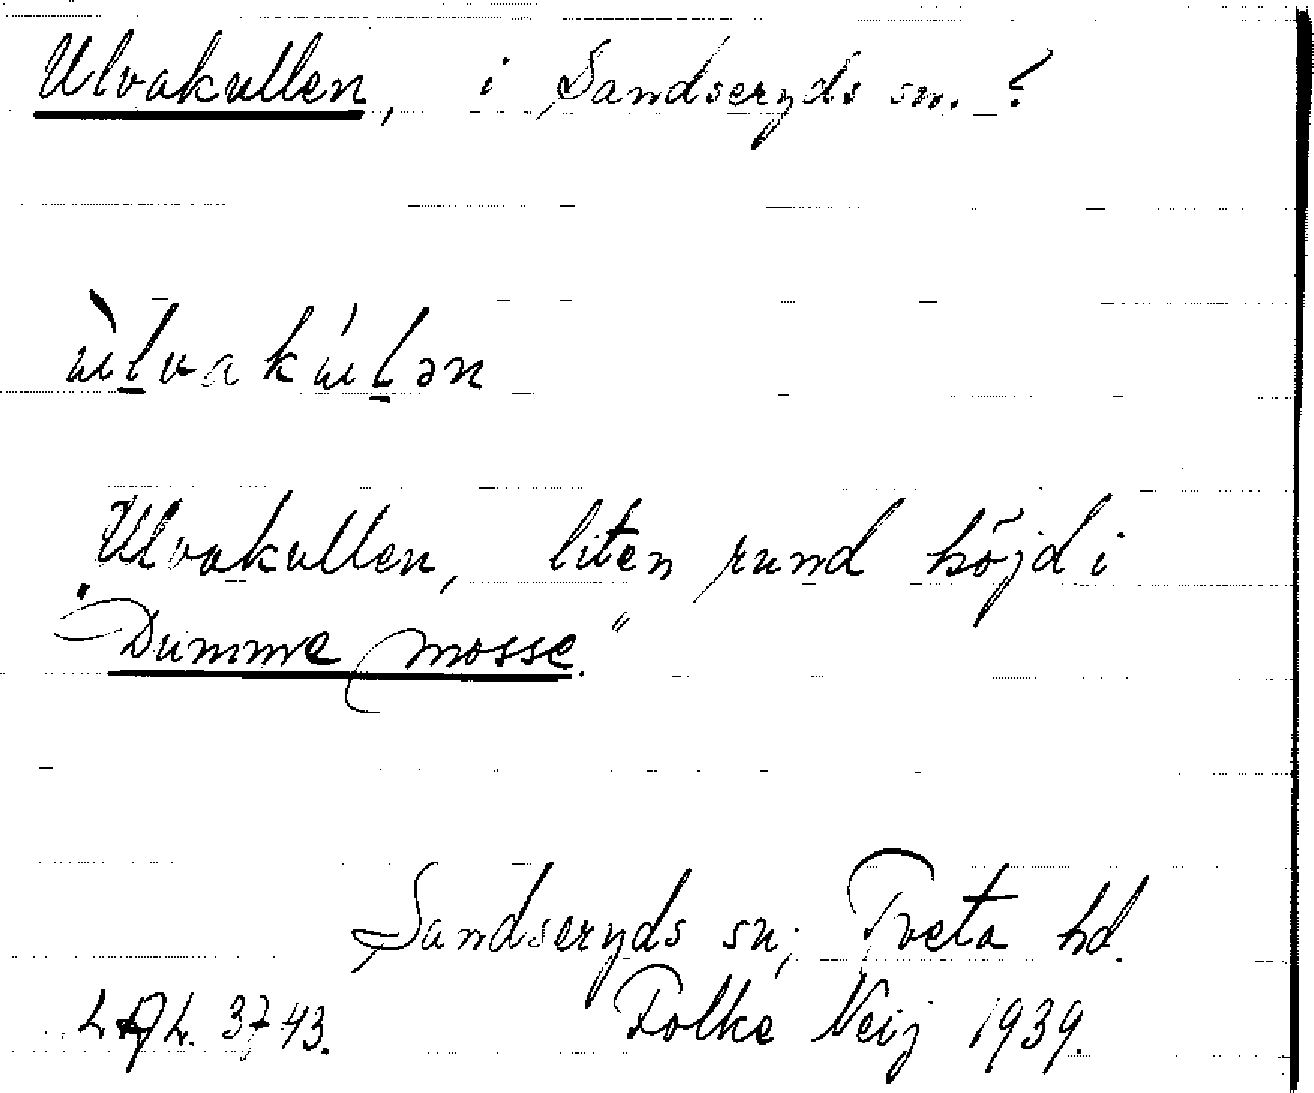 Ulvakullen, i Sandseryds sn. ?
ùl̠vakúl̠ən
Ulvakullen, liten rund höjd i
"Dumme mosse."
Sandseryds sn; Tveta hd.
3743. Folke Neij 1939.